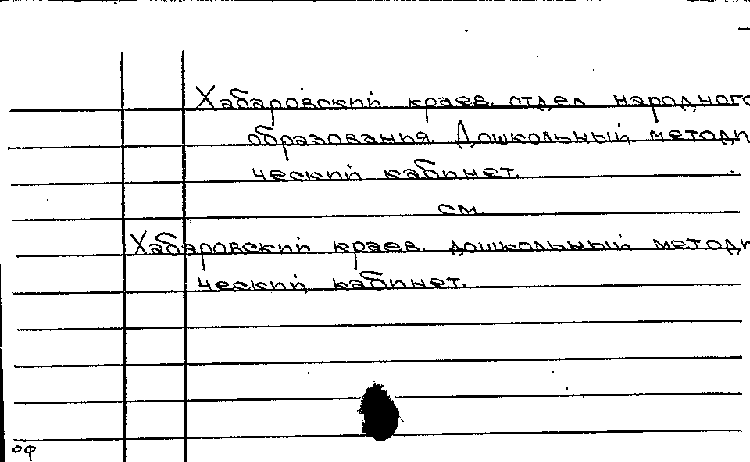 Хабаровский краев. отдел народного
образования. Дошкольный методи
ческий кабинет.
см.
Хабаровский краев. дошкольный методи
ческий кабинет.
оф